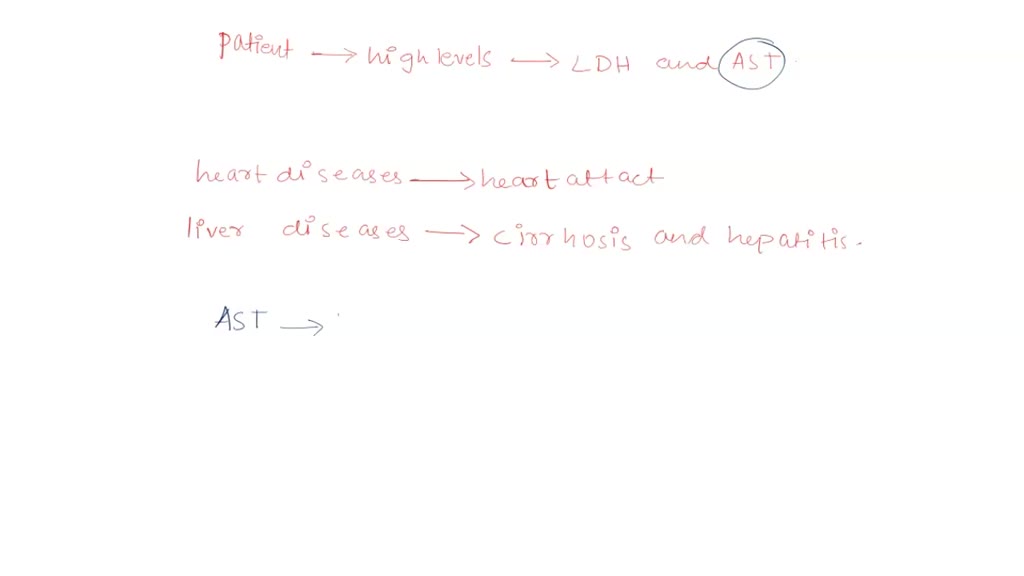 patient → high levels → LDH and AST
heart diseases → heart attact
liver diseases → cirrhosis and hepatitis.
AST →